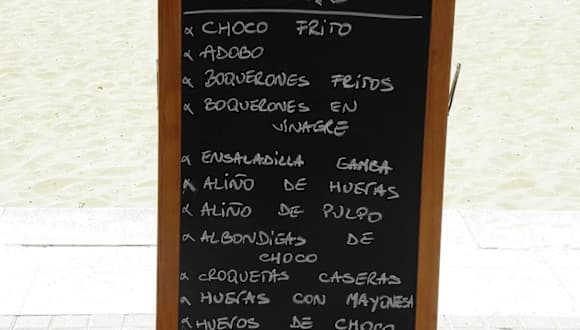 α CHOCO FRITO
α ADOBO
α BOQUERONES FRITOS
α BOQUERONES EN
VINAGRE
α ENSALADILLA GAMBA
α ALIÑO DE HUEVAS
α ALIÑO DE PULPO
α ALBONDIGAS DE
CHOCO
α CROQUETAS CASERAS
α HUEVAS CON MAYONESA
α HUEVOS DE CHOCO